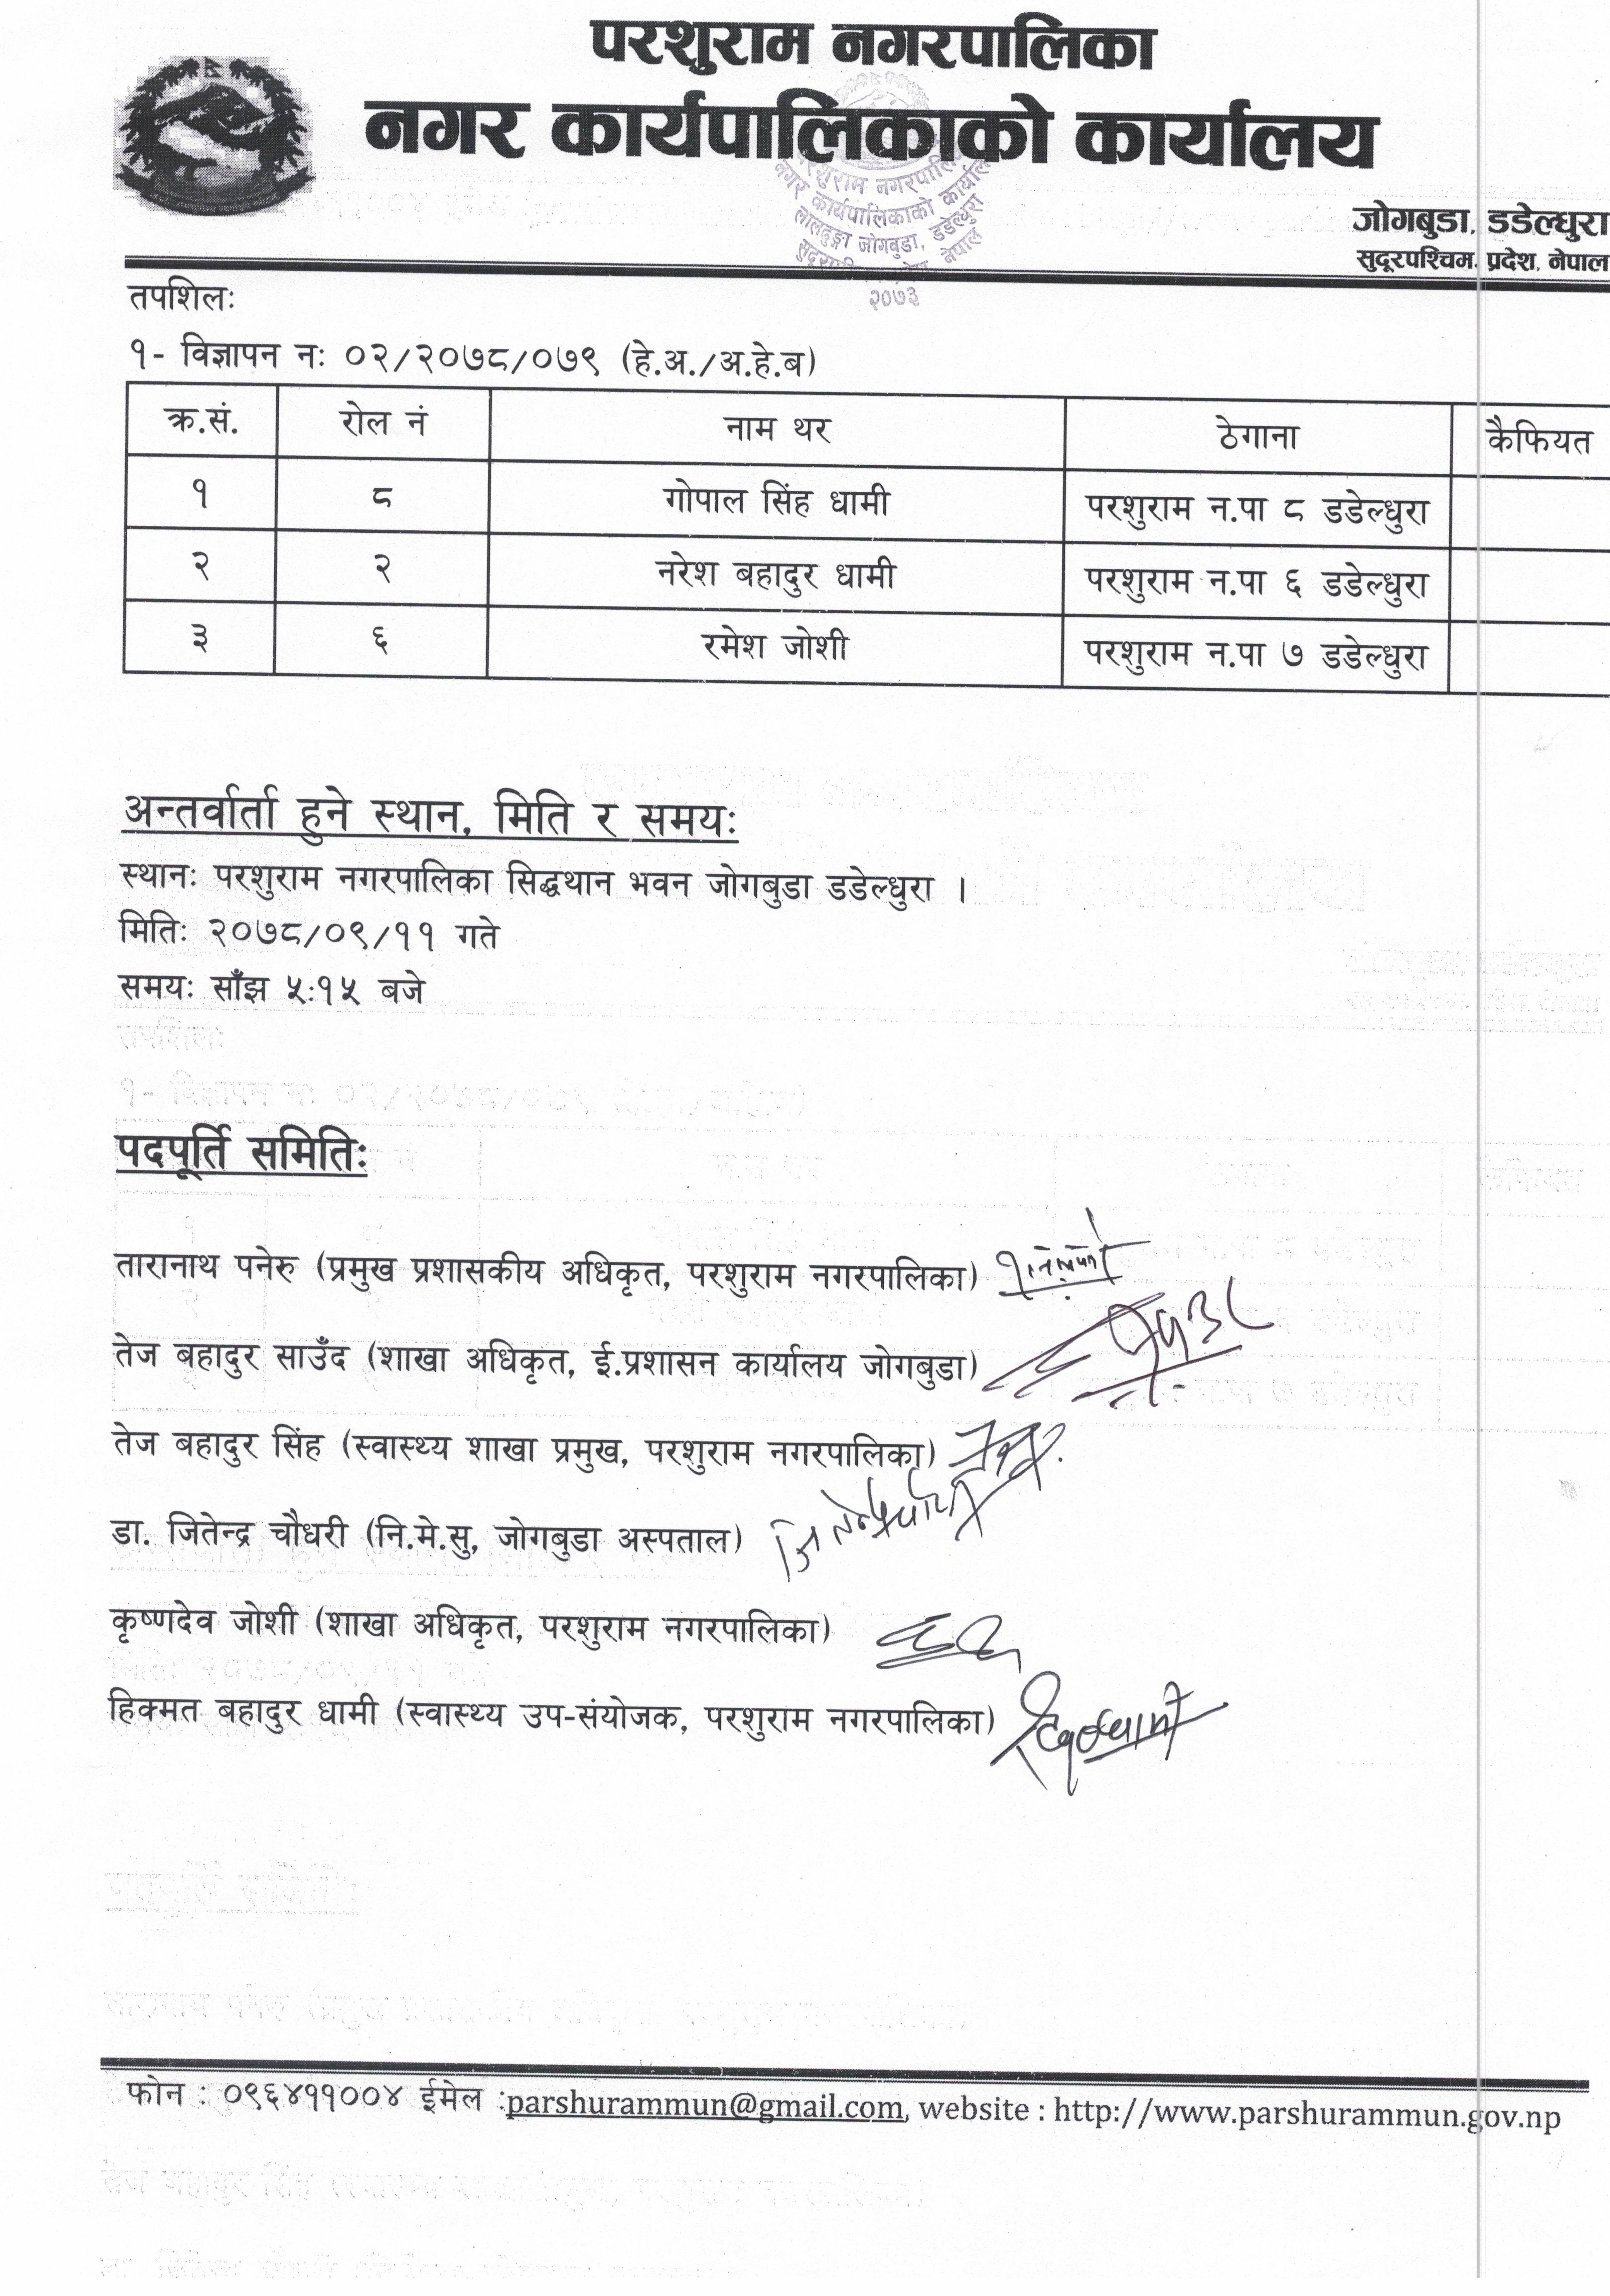 परशुराम नगरपालिका
नगर कार्यपालिकाको कार्यालय
परशुराम नगरपालिका
नगर कार्यपालिकाको कार्यालय
लालढुङ्गा जोगबुडा, डडेल्धुरा
नेपाल
२०७३
जोगबुडा, डडेल्धुरा
सुदूरपश्चिम, प्रदेश, नेपाल
तपशिलः
१- विज्ञापन नः ०२/२०७८/०७९ (हे.अ./अ.हे.ब)
क्र.सं. रोल नं नाम थर ठेगाना कैफियत
१ ८ गोपाल सिंह धामी परशुराम न.पा ८ डडेल्धुरा
२ २ नरेश बहादुर धामी परशुराम न.पा ६ डडेल्धुरा
३ ६ रमेश जोशी परशुराम न.पा ७ डडेल्धुरा
अन्तर्वार्ता हुने स्थान, मिति र समयः
स्थानः परशुराम नगरपालिका सिद्धथान भवन जोगबुडा डडेल्धुरा ।
मितिः २०७८/०९/११ गते
समयः साँझ ५:१५ बजे
तपशिलः
१- विज्ञापन नः ०२/२०७८/०७९
पदपूर्ति समितिः
तारानाथ पनेरु (प्रमुख प्रशासकीय अधिकृत, परशुराम नगरपालिका)
तेज बहादुर साउँद (शाखा अधिकृत, ई.प्रशासन कार्यालय जोगबुडा)
तेज बहादुर सिंह (स्वास्थ्य शाखा प्रमुख, परशुराम नगरपालिका)
डा. जितेन्द्र चौधरी (नि.मे.सु, जोगबुडा अस्पताल)
कृष्णदेव जोशी (शाखा अधिकृत, परशुराम नगरपालिका)
हिक्मत बहादुर धामी (स्वास्थ्य उप-संयोजक, परशुराम नगरपालिका)
फोन : ०९६४११००४ ईमेल :parshurammun@gmail.com, website : http://www.parshurammun.gov.np